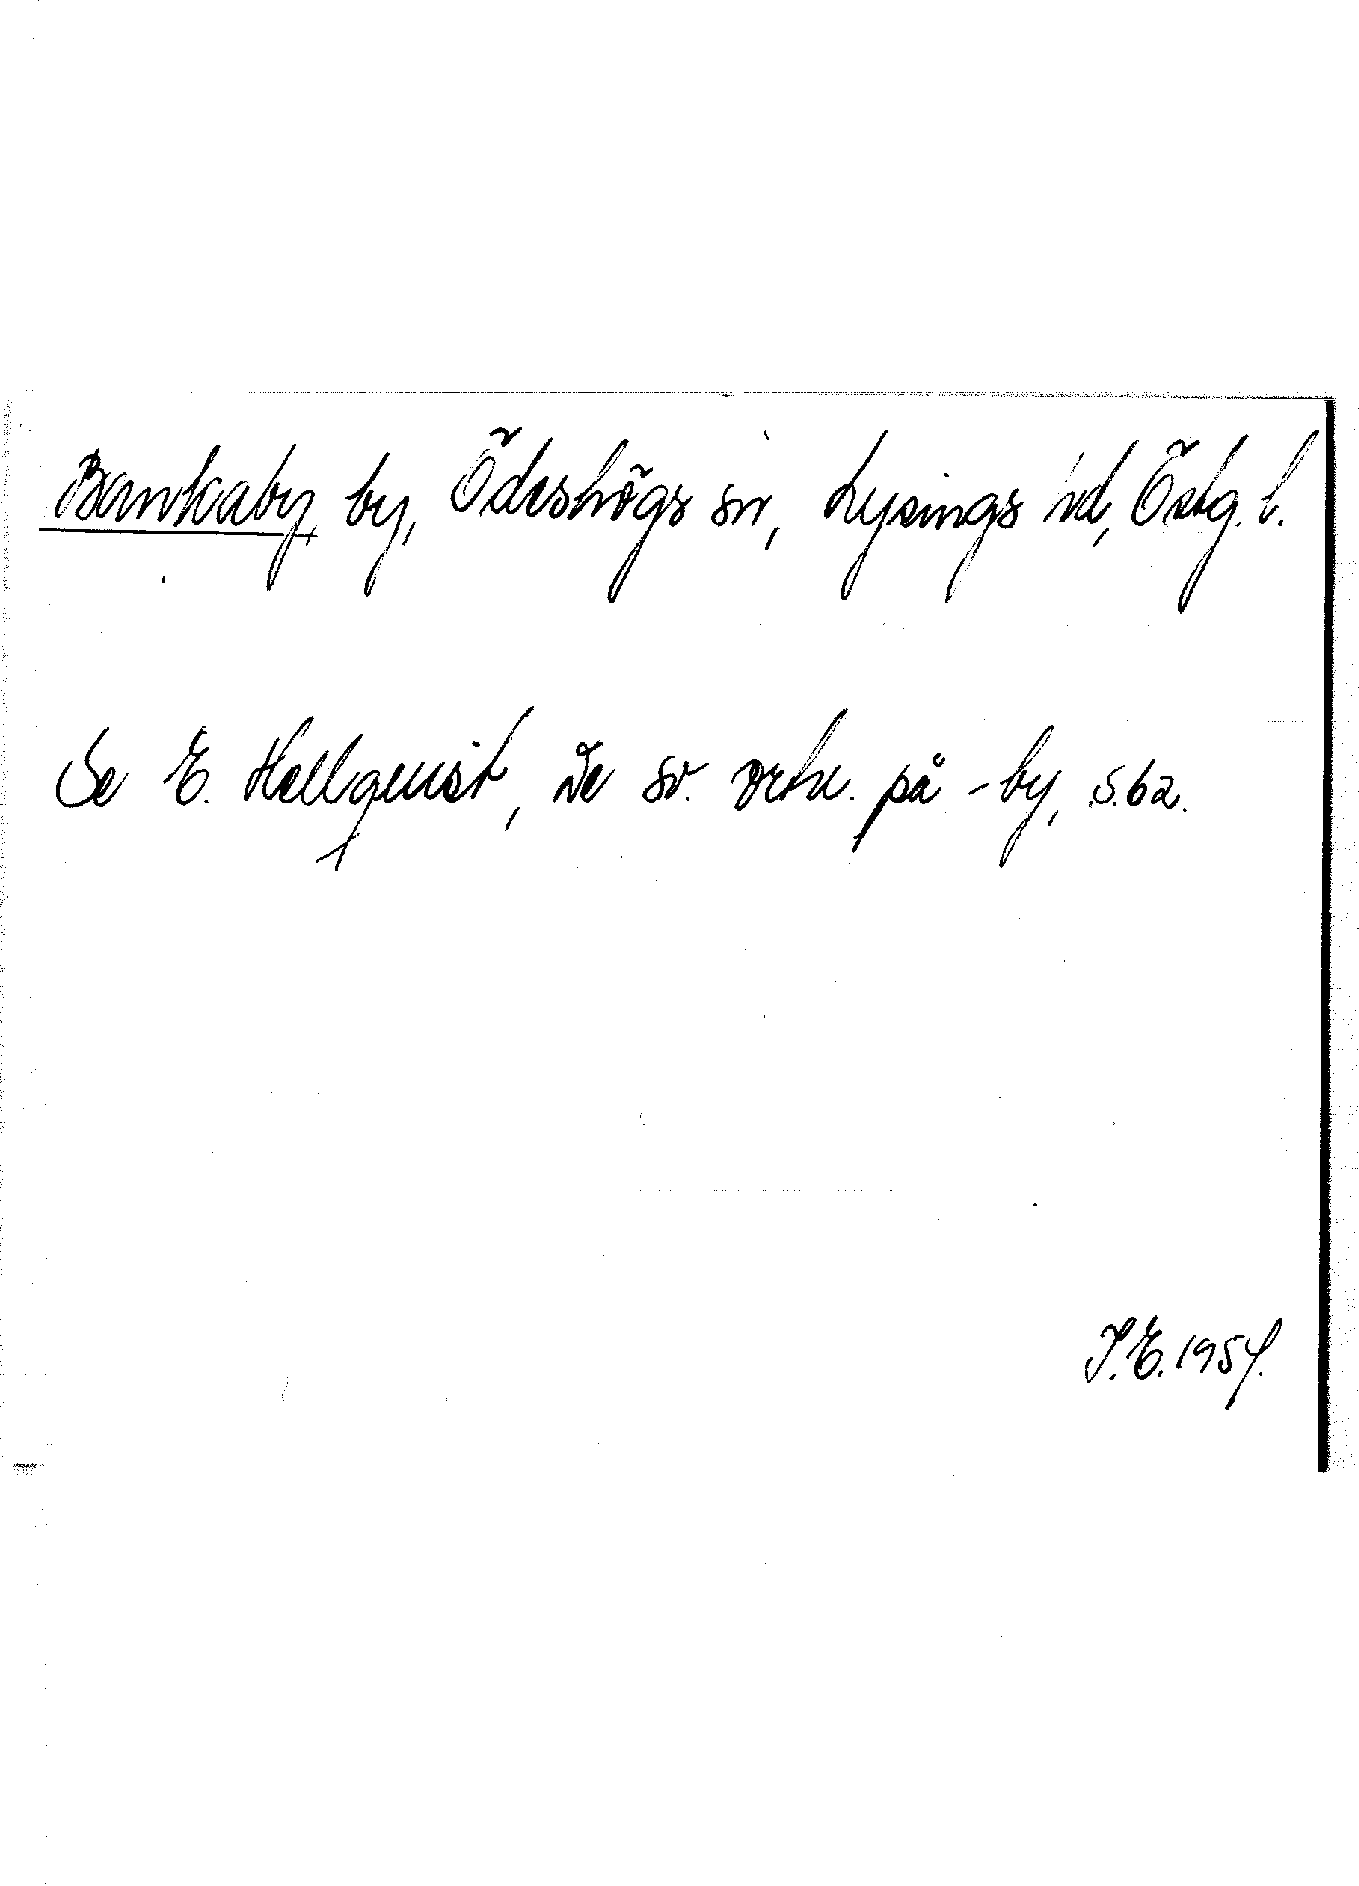 Bankaby by, Ödeshögs sn, Lysings hd, Östg. l.
Se E. Hellquist, De sv. ortn. på -by, s. 62.
I. E. 1954.